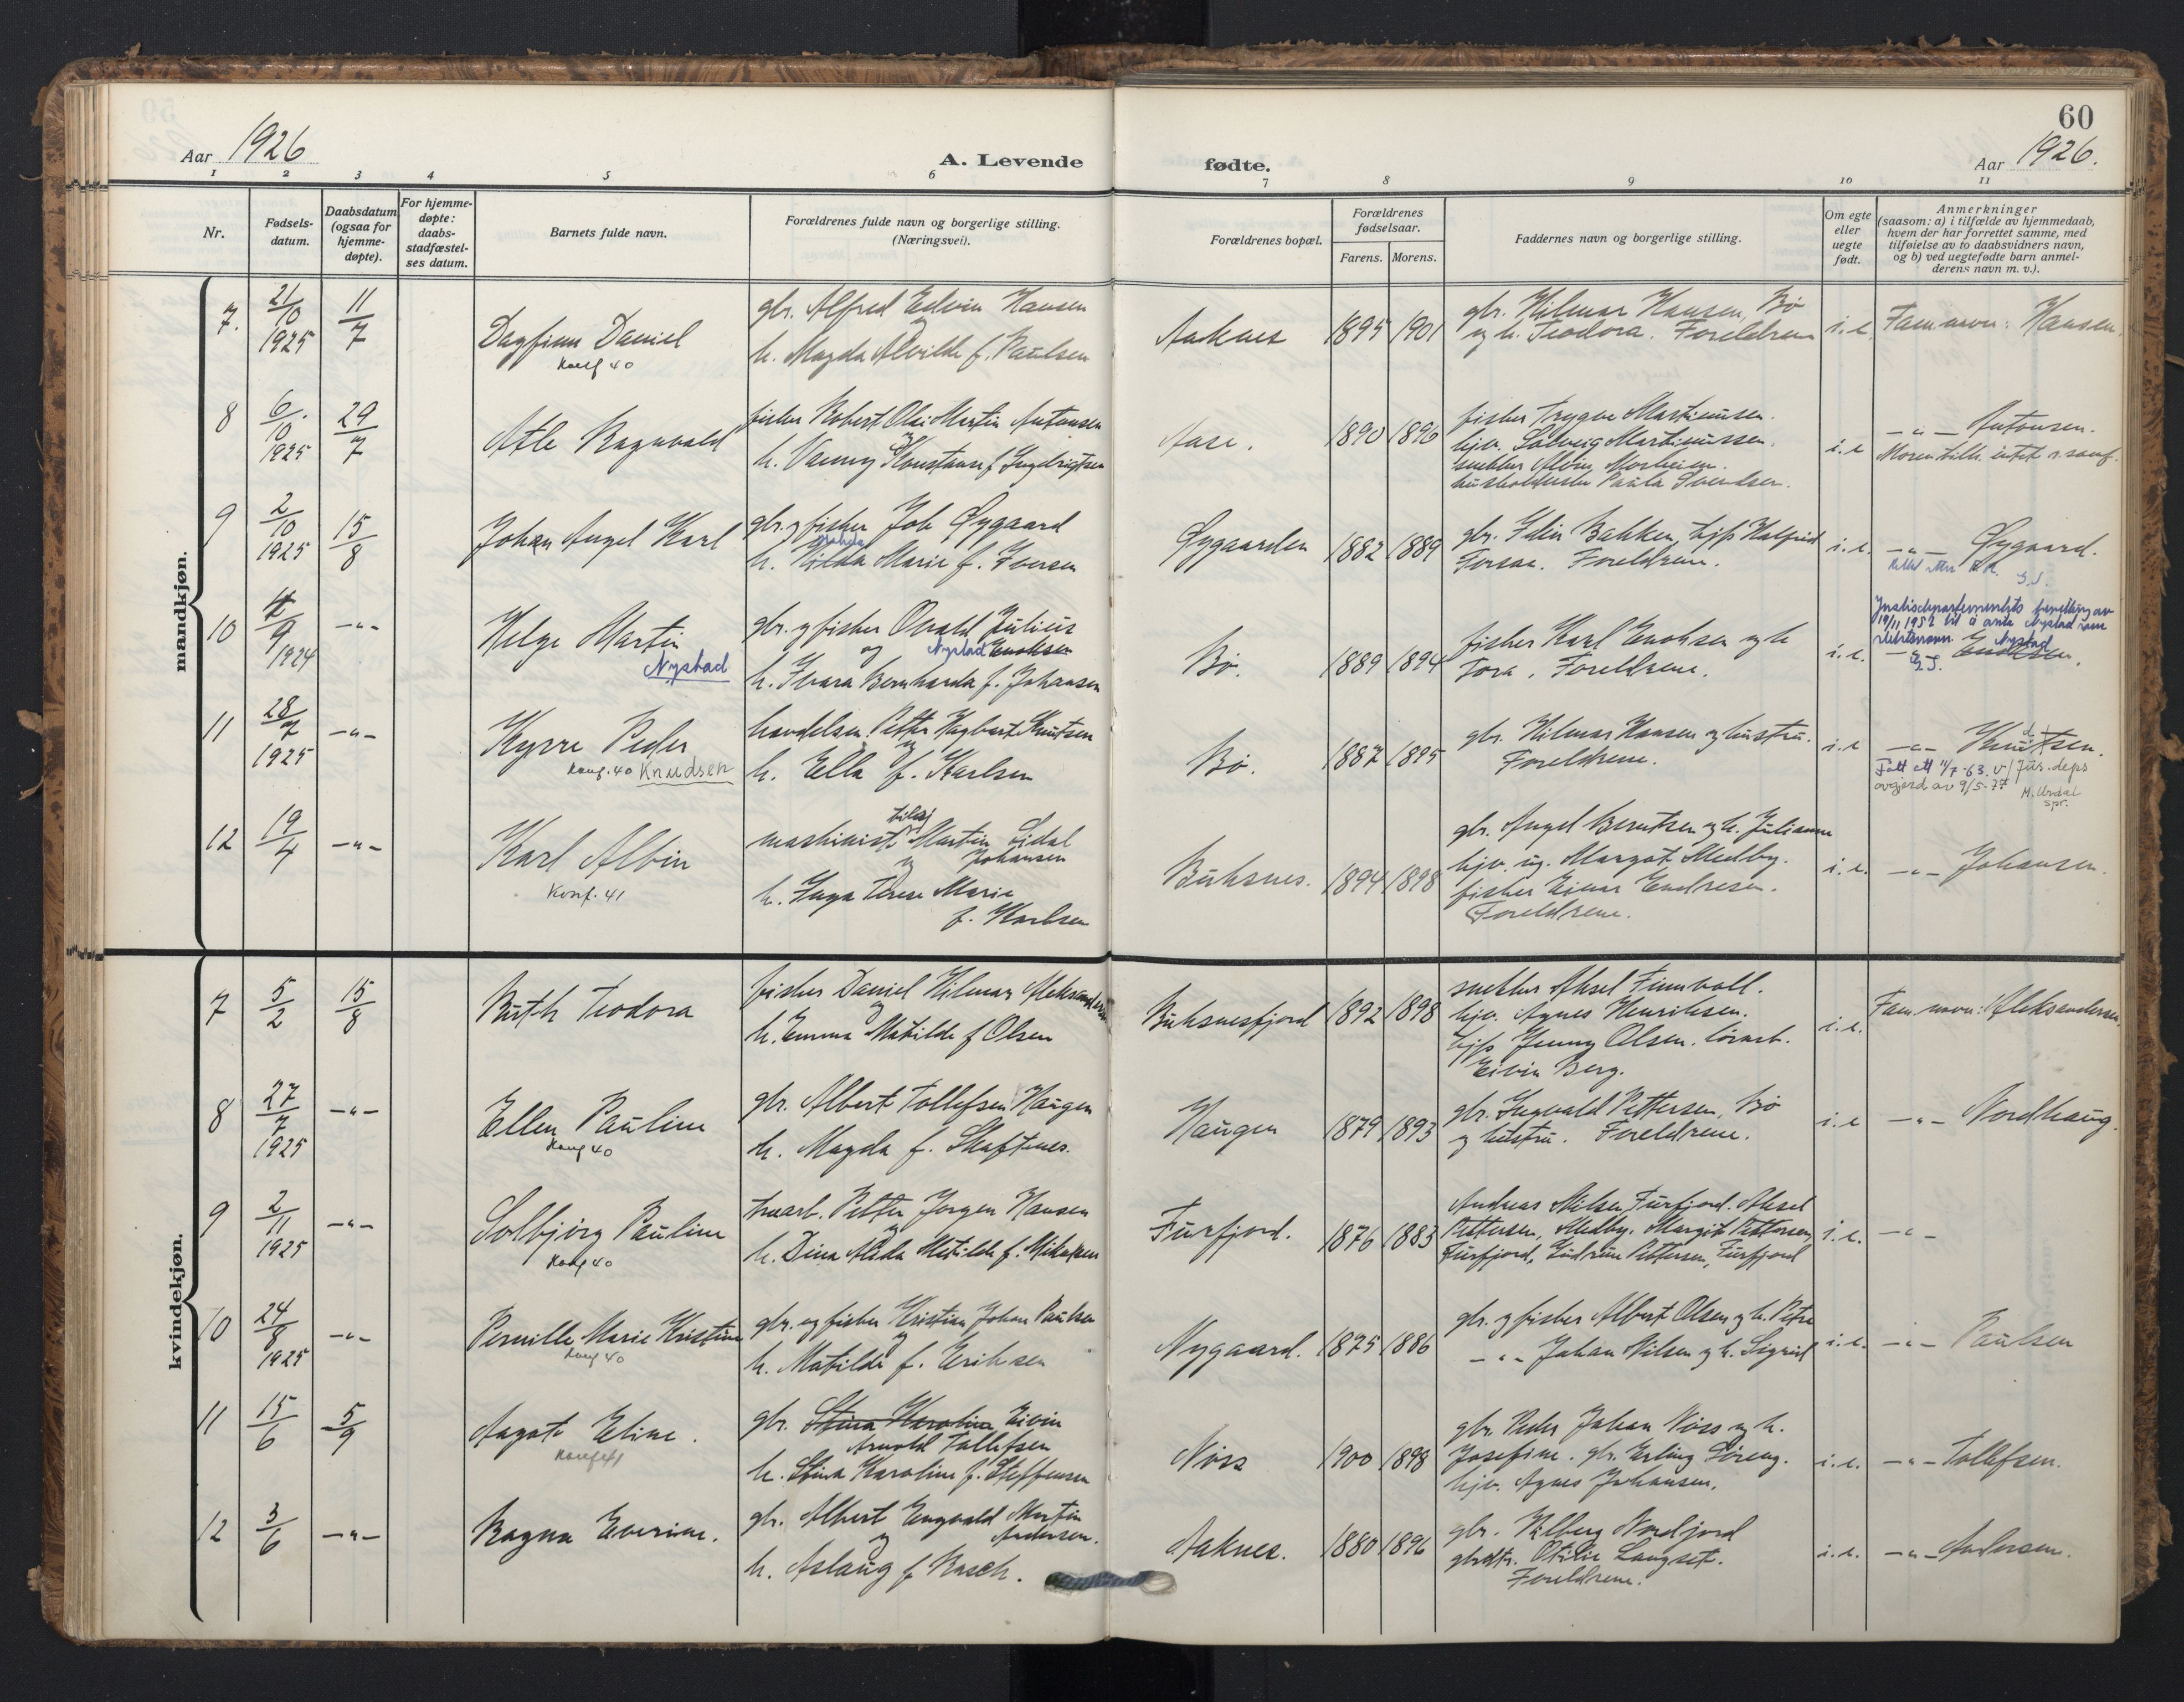 60
Aar 1926
A. Levende
fødte.
Aar 1926.
1 2 3 4 5 6 7 8 9 10 11
Nr.
Fødsels-
datum.
Daabsdatum
(ogsaa for
hjemme-
døpte).
For hjemme-
døpte:
daabs-
stadfæstel-
ses datum.
Barnets fulde navn.
Forældrenes fulde navn og borgerlige stilling.
(Næringsvei).
Forældrenes bopæl.
Forældrenes
fødselsaar.
Farens. Morens.
Faddernes navn og borgerlige stilling.
Om egte
eller
uegte
født.
Anmerkninger
(saasom: a) i tilfælde av hjemmedaab,
hvem der har forrettet samme, med
tilføielse av to daabsvidners navn,
og b) ved uegtefødte barn anmel-
derens navn m. v.).
mandkjøn.
7. 21/10 1925 11/7
Dagfinn Daniel
Konf 40
gbr. Alfred Edvin Hansen
og
h. Magda Alvilde f. Paulsen
Aaknes 1895 1901
gbr. Hilmar Hansen, Bø
og h. Teodora. Foreldrene
i.e. Fam.navn: Hansen.
8 6/10 1925 29/7
Atle Ragnvald
fisker Robert Olai Martin Antonsen
og
h. Vanny Konstanse f. Ingebrigtsen
Aase. 1890 1896
fisker Trygve Martinusen.
hjv. Solveig Martinussen.
snekker
husholderske Paula Svendsen.
i.e -"- Antonsen.
Moren tilh. intet r. samf.
9 2/10 1925 15/8
Johan Angel Karl
gbr. og fisker Joh Øygaard
h. Hilda Marie f. Iversen
Øygaarden 1882 1889
gbr. Edin Bakken, tjp Halfrid
Forsaa. Foreldrene.
i.e. -"- Øygaard.
G.S.
10 4/9 1924 -"-
Helge Martin
Nystad
gbr. og fisker Osvald Julius
og Nystad Enoksen
h. Ivara Bernharda f. Johansen
Bø. 1889 1894
fisker Karl Enoksen og h
Tora. Foreldrene.
i.e. -"- Enoksen.
Justisdepartementets bevilling av
10/11 1952 til å anta Nystad som
slektsnavn. Nystad
G.S.
11 28/7 1925 -"-
Kyrre Peder
Konf. 40 Knudsen
handelsm. Petter Hagbart Knutsen
og
h. Ella f. Karlsen
Bø. 1887 1895
gbr. Hilmar Hansen og hustru.
Foreldrene.
i.e -"- Knutsen.
d
Tatt att 11/7-63. v/Jus.deps
avgjerd av 9/5-77 M. Urdal
spr.
12 19/4 -"-
Karl Albin
Konf. 41
maskinist Martin Lidal
og Johansen
h. Inga Terese Marie
f. Karlsen
Buksnes. 1894 1898
gbr. Angel Berntsen og h. Julianne
hjv. ug. Margot Medby.
fisker Einar Endresen.
Foreldrene.
i.e. -"- Johansen.
kvindekjøn.
7 5/2 15/8
Ruth Teodora
fisker Daniel Hilmar Aleksandersen
og
h. Emma Matilde f Olsen
Buksnesfjord 1892 1898
snekker Aksel Finnvoll.
hjv. Agnes Henriksen.
tjp Jenny Olsen. lösarb.
Eivin Berg.
i.e. Fam.navn: Aleksandersen.
8 27/7 1925 -"-
Ellen Pauline
Konf 40
gbr. Albert Tollefsen Haugen
h. Magda f. Skaftnes.
Haugen 1879 1893
gbr. Ingvald Pettersen, Bö
og hustru. Foreldrene.
i.e -"- Nordhaug.
9 2/11 1925 -"-
Solbjörg Pauline
Konf 40
Petter Jørgen Hansen
og
h. Dina Alida Matilde f. Mikalsen
Furfjord. 1876 1883
Andreas Nilsen, Furfjord. Aksel
Pettersen, Medby. Margit Pettersen,
Furfjord, Gudrun Pettersen, Furfjord
i.e. -"-
10 24/8 1925 -"-
Pernille Marie Kristine
Konf 40
gbr. og fisker Kristian Johan Paulsen
og
h. Matilde f. Eriksen
Nygaard. 1875 1886
gbr. og fisker Albert Olsen og h. Petra
-"- Johan Nilsen og h. Sigrid
i.e. -"- Paulsen
11 15/6 5/9
Aagot Eline.
Konf 41
gbr. Stina Karoline Eivin
Arnold Tollefsen
h. Stina Karoline f. Steffensen
Nöss 1900 1898
gbr. Peder Johan Nöss og h.
Josefine. gbr. Erling Löreng.
hjv. Agnes Johansen.
i.e. -"- Tollefsen.
12 3/6 -"-
Ragna Everine.
gbr. Albert Engvald Martin
og Andersen.
h. Aslaug f Rasch.
Aaknes. 1880 1896
gbr. Nordfjord
gbrdtr. Otilie Langset.
Foreldrene.
i.e. -"- Andersen.